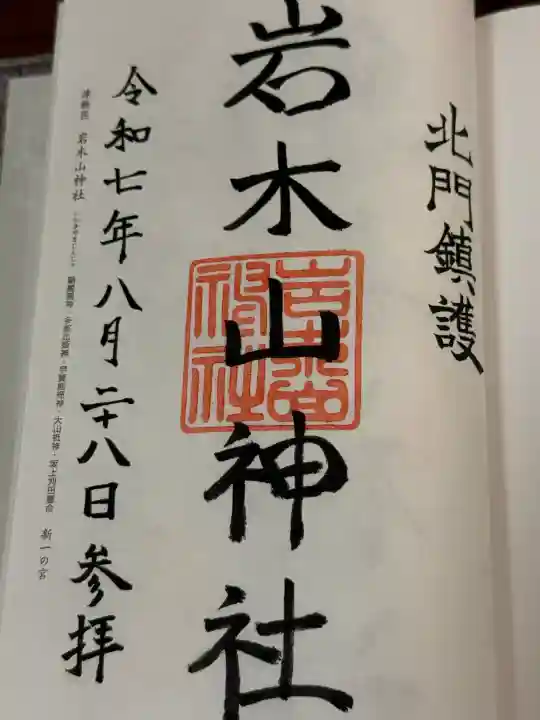 北門鎮護
岩木山神社
令和七年八月二十八日参拝
津軽国 岩木山神社 いわきやまじんじゃ 顕國魂神・多都比姫神・宇賀能売神・大山祇神・坂上刈田麿命 新一の宮
岩木山神社